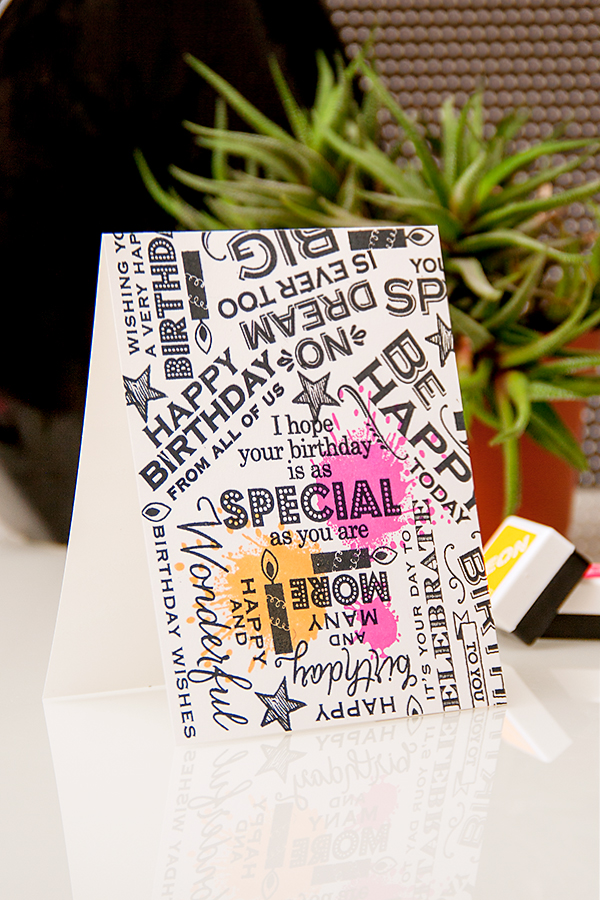 WISHING YO
A VERY HAP
BIRTHDA
BIG
IS EVER TOO
DREAM
NO
YOU
SP
HAPPY
BIRTHDAY
FROM ALL OF US
BE
HAPPY
TODAY
I hope
your birthday
is as
SPECIAL
as you are
Wonderful
BIRTHDAY WISHES
HAPPY
AND
MORE
MANY
AND
birthday
HAPPY
IT'S YOUR DAY TO
ELEBRATE
BIRT
TO YOU
EON